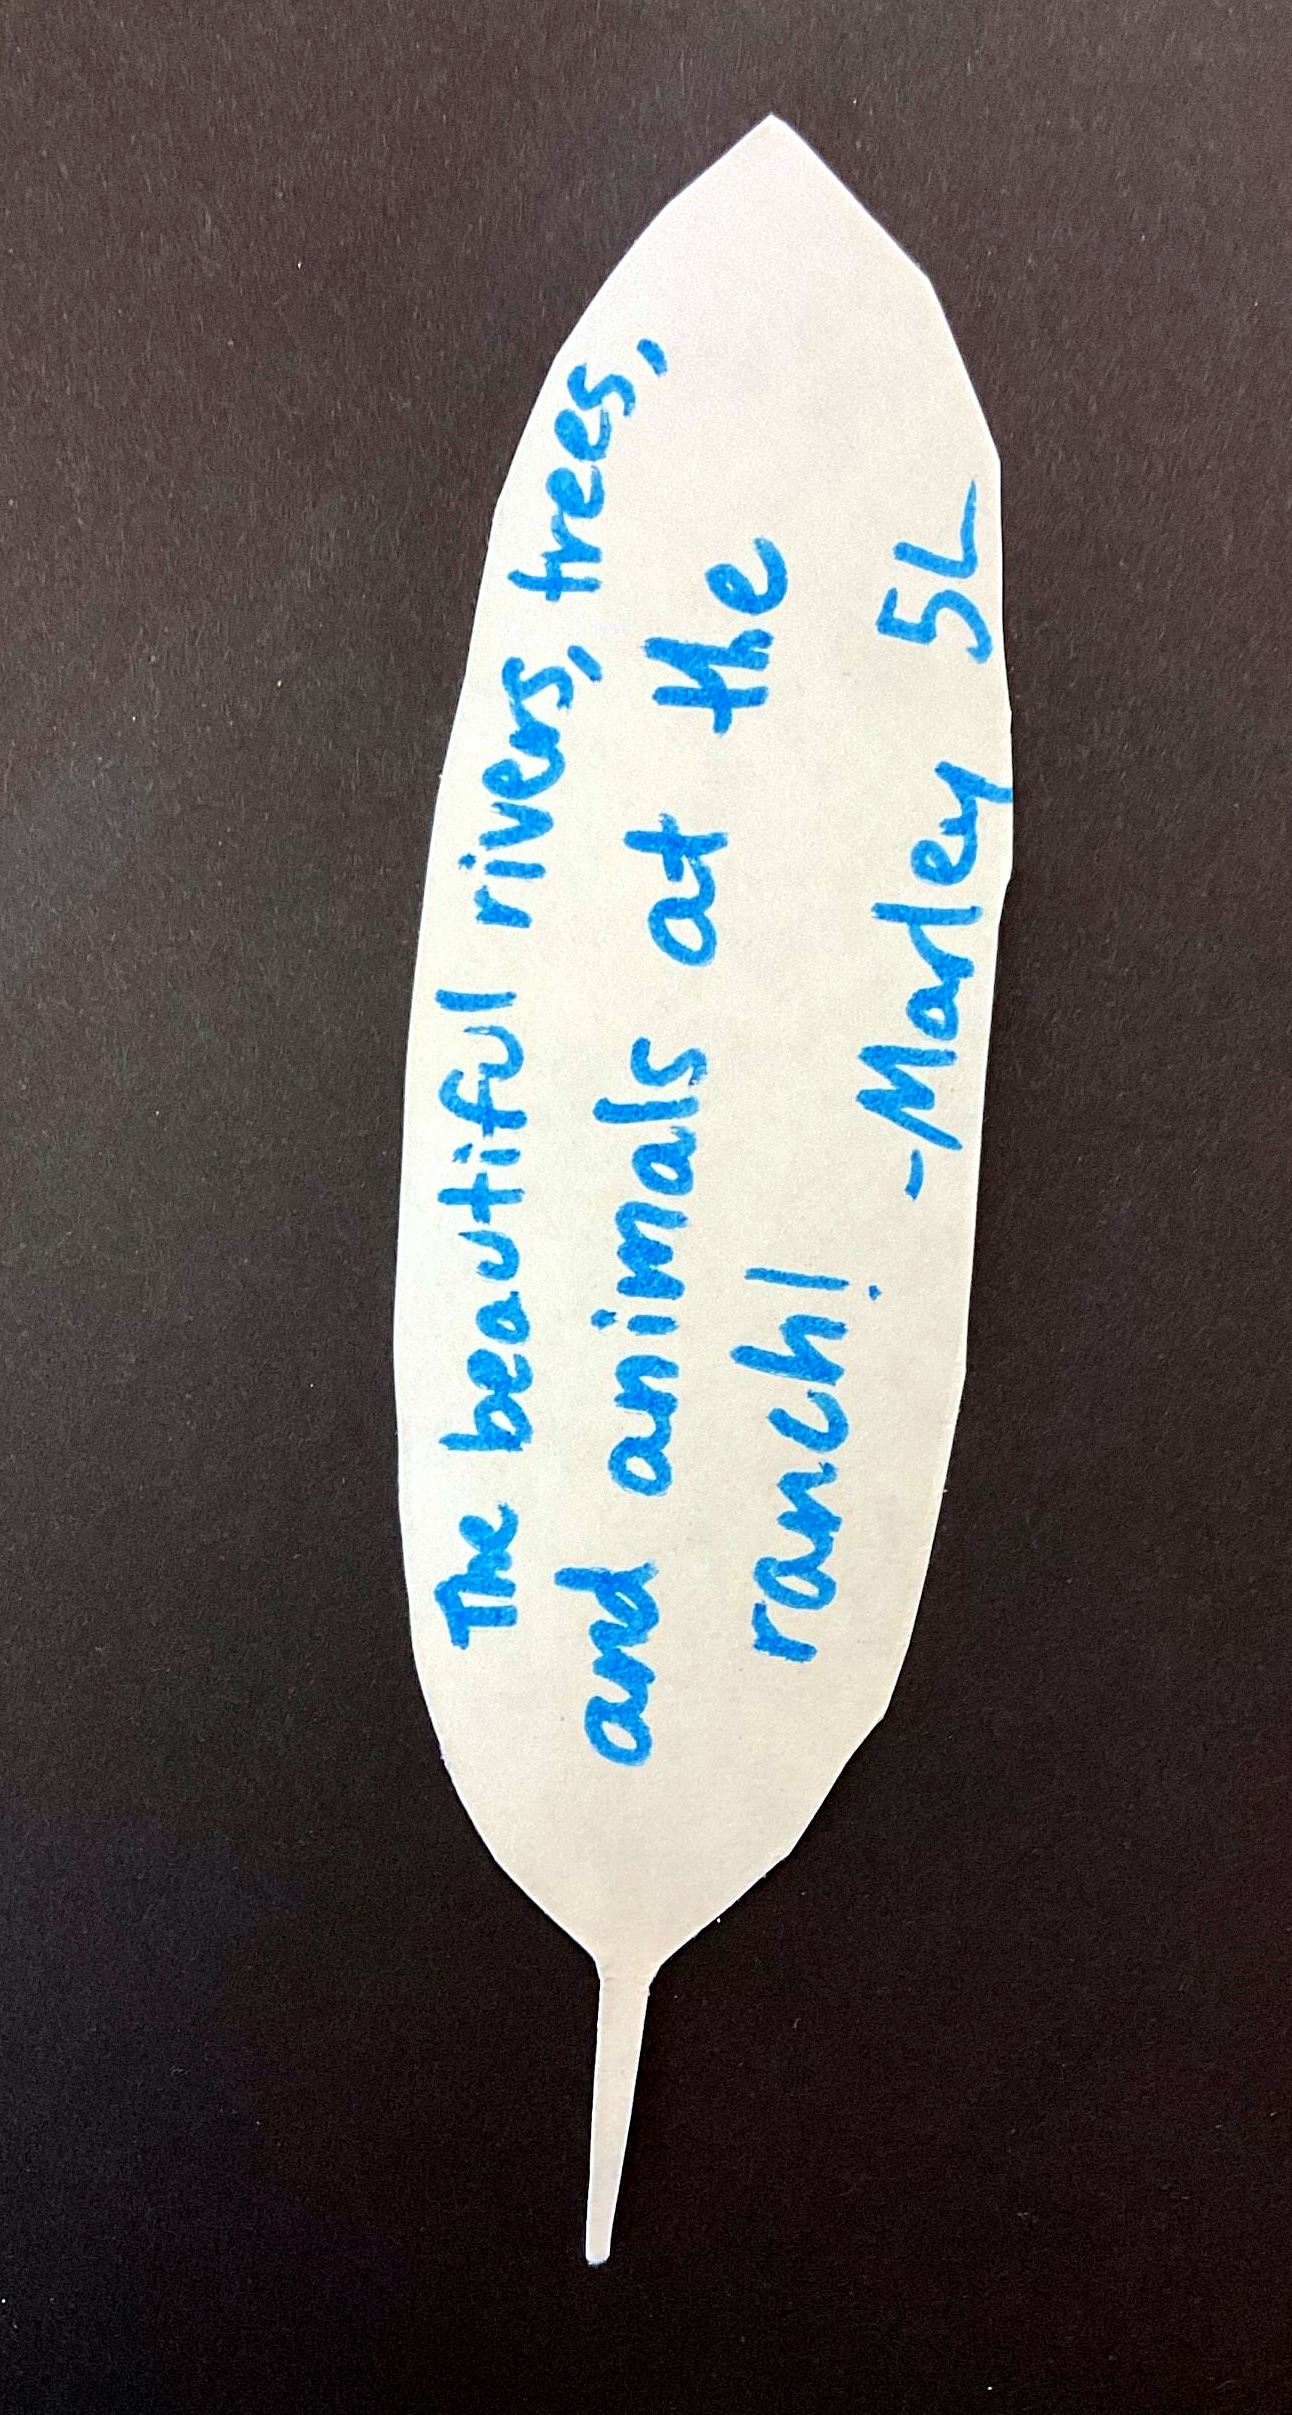 The beautiful rivers, trees,
and animals at the
ranch!
-Marley 5L